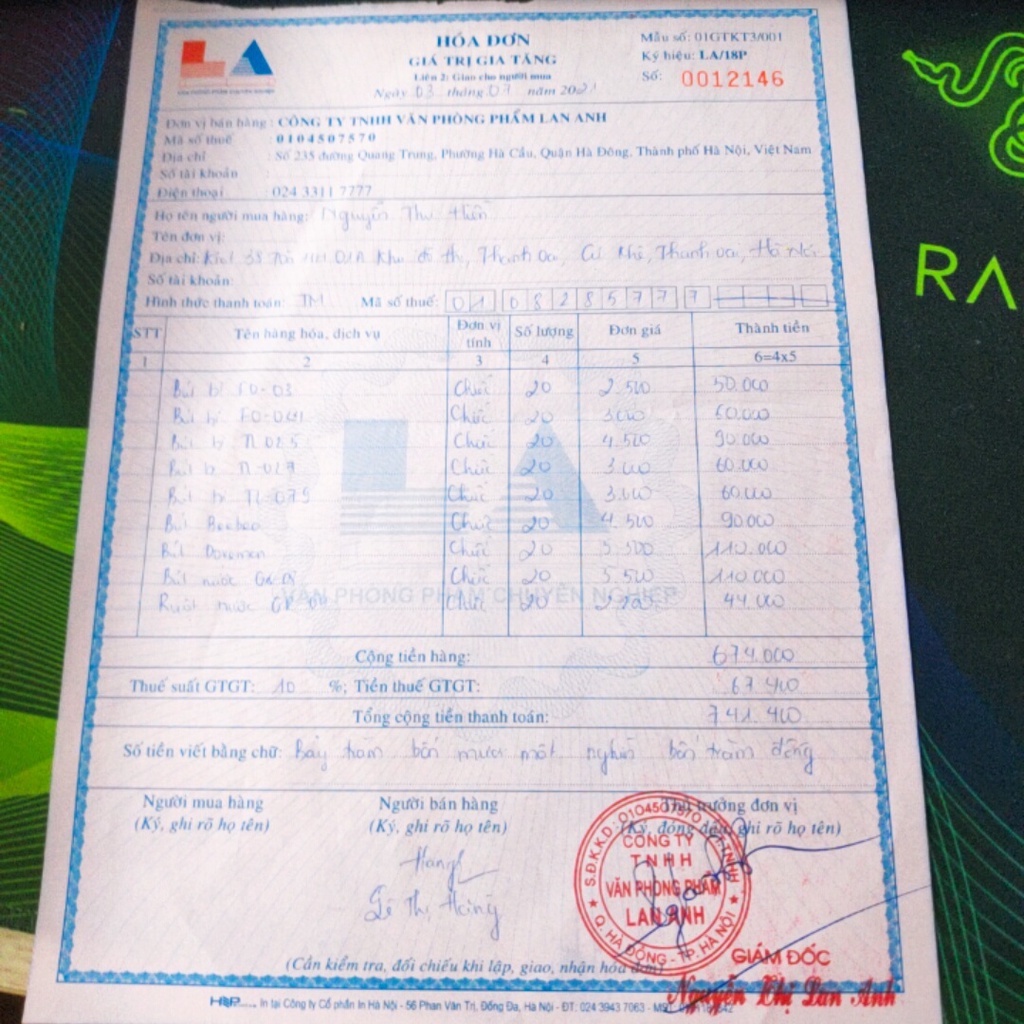 LA
HÓA ĐƠN
GIÁ TRỊ GIA TĂNG
Liên 2: Giao cho người mua
Ngày 03 tháng 07 năm 2021
Mẫu số: 01GTKT3/001
Ký hiệu: LA/18P
Số: 0012146
Đơn vị bán hàng: CÔNG TY TNHH VĂN PHÒNG PHẨM LAN ANH
Mã số thuế : 0104507570
Địa chỉ : Số 235 đường Quang Trung, Phường Hà Cầu, Quận Hà Đông, Thành phố Hà Nội, Việt Nam
Số tài khoản :
Điện thoại : 024 3311 7777
Họ tên người mua hàng: Nguyễn Thu
Tên đơn vị:
Địa chỉ: 38 khu đô thị, Thanh Oai, Cự Khê, Thanh Oai, Hà Nội
Số tài khoản:
Hình thức thanh toán: TM Mã số thuế: 0108285777
STT Tên hàng hóa, dịch vụ Đơn vị tính Số lượng Đơn giá Thành tiền
1 2 3 4 5 6=4x5
Bút bi FO-03 Chiếc 20 2.500 50.000
Bút bi Chiếc 20 3.000 60.000
Bút bi TL025 Chiếc 20 4.500 90.000
Bút bi TL-027 Chiếc 20 3.000 60.000
Bút bi TL-079 Chiếc 20 3.000 60.000
Bút Beebee Chiếc 20 4.500 90.000
Bút Doremon Chiếc 20 5.500 110.000
Bút nước Chiếc 20 5.500 110.000
Ruột nước Chiếc 20 2.200 44.000
VĂN PHÒNG PHẨM CHUYÊN NGHIỆP
Cộng tiền hàng: 674.000
Thuế suất GTGT: 10 %; Tiền thuế GTGT: 67.400
Tổng cộng tiền thanh toán: 741.400
Số tiền viết bằng chữ: Bảy trăm bốn mươi mốt nghìn bốn trăm đồng
Người mua hàng Người bán hàng Thủ trưởng đơn vị
(Ký, ghi rõ họ tên) (Ký, ghi rõ họ tên) (Ký, đóng dấu, ghi rõ họ tên)
Lê Thị Hằng
S.Đ.K.K.D: 0104507570
CÔNG TY
TNHH
VĂN PHÒNG PHẨM
LAN ANH
Q. HÀ ĐÔNG - TP. HÀ NỘI
GIÁM ĐỐC
Nguyễn Thị Lan Anh
(Cần kiểm tra, đối chiếu khi lập, giao, nhận hóa đơn)
In tại Công ty Cổ phần In Hà Nội - 56 Phan Văn Trị, Đống Đa, Hà Nội - ĐT: 024 3943 7063 -
RA